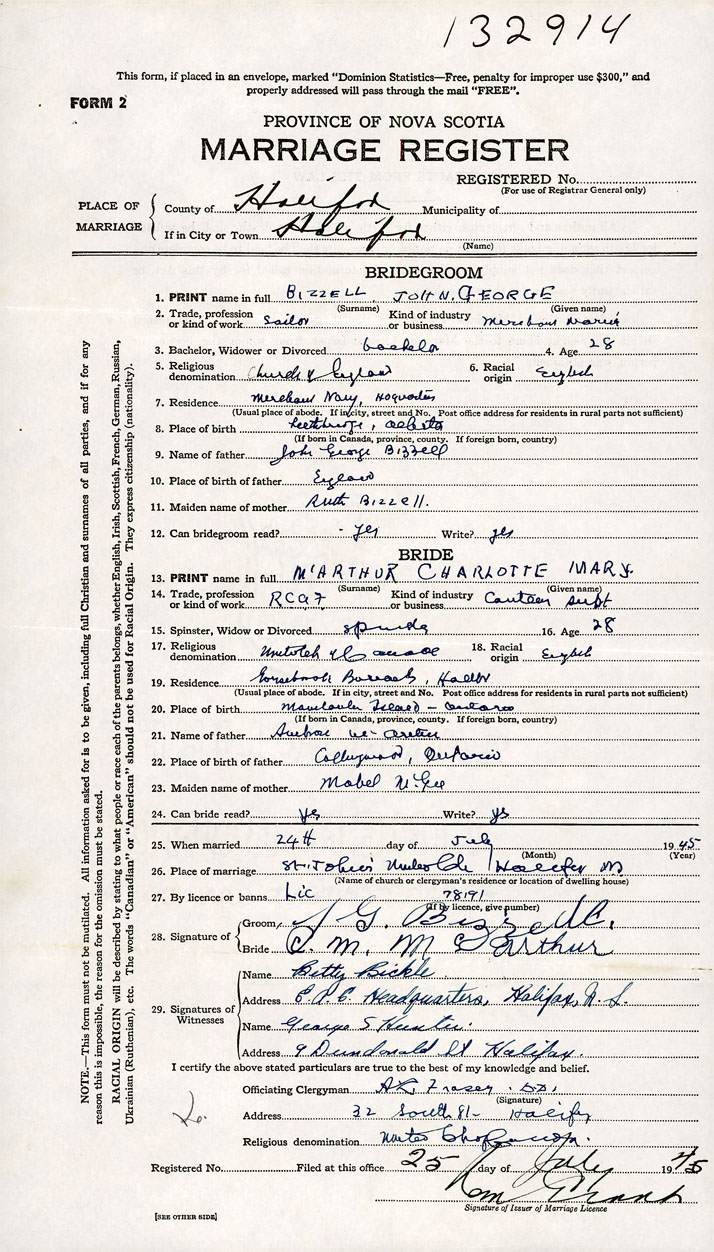 132914
This form, if placed in an envelope, marked “Dominion Statistics—Free, penalty for improper use $300,” and
properly addressed will pass through the mail “FREE”.
FORM 2
PROVINCE OF NOVA SCOTIA
MARRIAGE REGISTER
REGISTERED No.
(For use of Registrar General only)
PLACE OF MARRIAGE
County of Halifax Municipality of
If in City or Town Halifax
(Name)
BRIDEGROOM
1. PRINT name in full BIZZELL, JOHN, GEORGE
(Surname) (Given name)
2. Trade, profession or kind of work Sailor Kind of industry or business Merchant Marine
3. Bachelor, Widower or Divorced bachelor 4. Age 28
5. Religious denomination Church of England 6. Racial origin English
7. Residence Merchant Navy,
(Usual place of abode. If in city, street and No. Post office address for residents in rural parts not sufficient)
8. Place of birth Lethbridge, Alberta
(If born in Canada, province, county. If foreign born, country)
9. Name of father John George Bizzell
10. Place of birth of father England
11. Maiden name of mother Ruth Bizzell.
12. Can bridegroom read? yes Write? yes
BRIDE
13. PRINT name in full McARTHUR CHARLOTTE MARY
(Surname) (Given name)
14. Trade, profession or kind of work RCAF Kind of industry or business Canteen supt
15. Spinster, Widow or Divorced 16. Age 28
17. Religious denomination United Ch of Canada 18. Racial origin English
19. Residence Barracks, Halifax
(Usual place of abode. If in city, street and No. Post office address for residents in rural parts not sufficient)
20. Place of birth Manitoulin Island - Ontario
(If born in Canada, province, county. If foreign born, country)
21. Name of father
22. Place of birth of father Collingwood, Ontario
23. Maiden name of mother Mabel McGee
24. Can bride read? yes Write? yes
25. When married 24th day of July 1945
(Month) (Year)
26. Place of marriage St. John's United Ch Halifax
(Name of church or clergyman's residence or location of dwelling house)
27. By licence or banns Lic 78191
(If by licence, give number)
28. Signature of
Groom J G. Bizzell.
Bride C. M. McArthur
29. Signatures of Witnesses
Name Betty Bickle
Address Headquarters, Halifax, N.S.
Name George S Hunter.
Address 9 Dundonald St Halifax.
I certify the above stated particulars are true to the best of my knowledge and belief.
Officiating Clergyman Fraser. DD.
(Signature)
Address 32 South St- Halifax
Religious denomination United Ch of Canada.
Registered No. Filed at this office 25 day of July 1945
Signature of Issuer of Marriage Licence
[SEE OTHER SIDE]
NOTE.—This form must not be mutilated. All information asked for is to be given, including full Christian and surnames of all parties, and if for any
reason this is impossible, the reason for the omission must be stated.
RACIAL ORIGIN will be described by stating to what people or race each of the parents belongs, whether English, Irish, Scottish, French, German, Russian,
Ukrainian (Ruthenian), etc. The words “Canadian” or “American” should not be used for Racial Origin. They express citizenship (nationality).